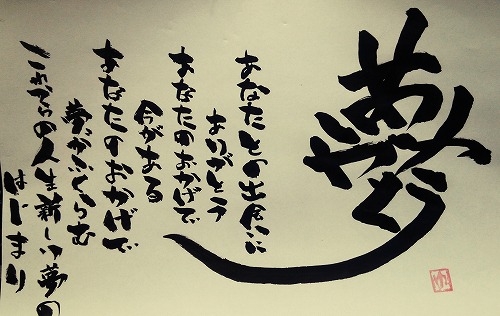 夢
あなたとの出会いに
ありがとう
あなたのおかげで
今がある
あなたのおかげで
夢がふくらむ
これからの人生新しい夢の
はじまり